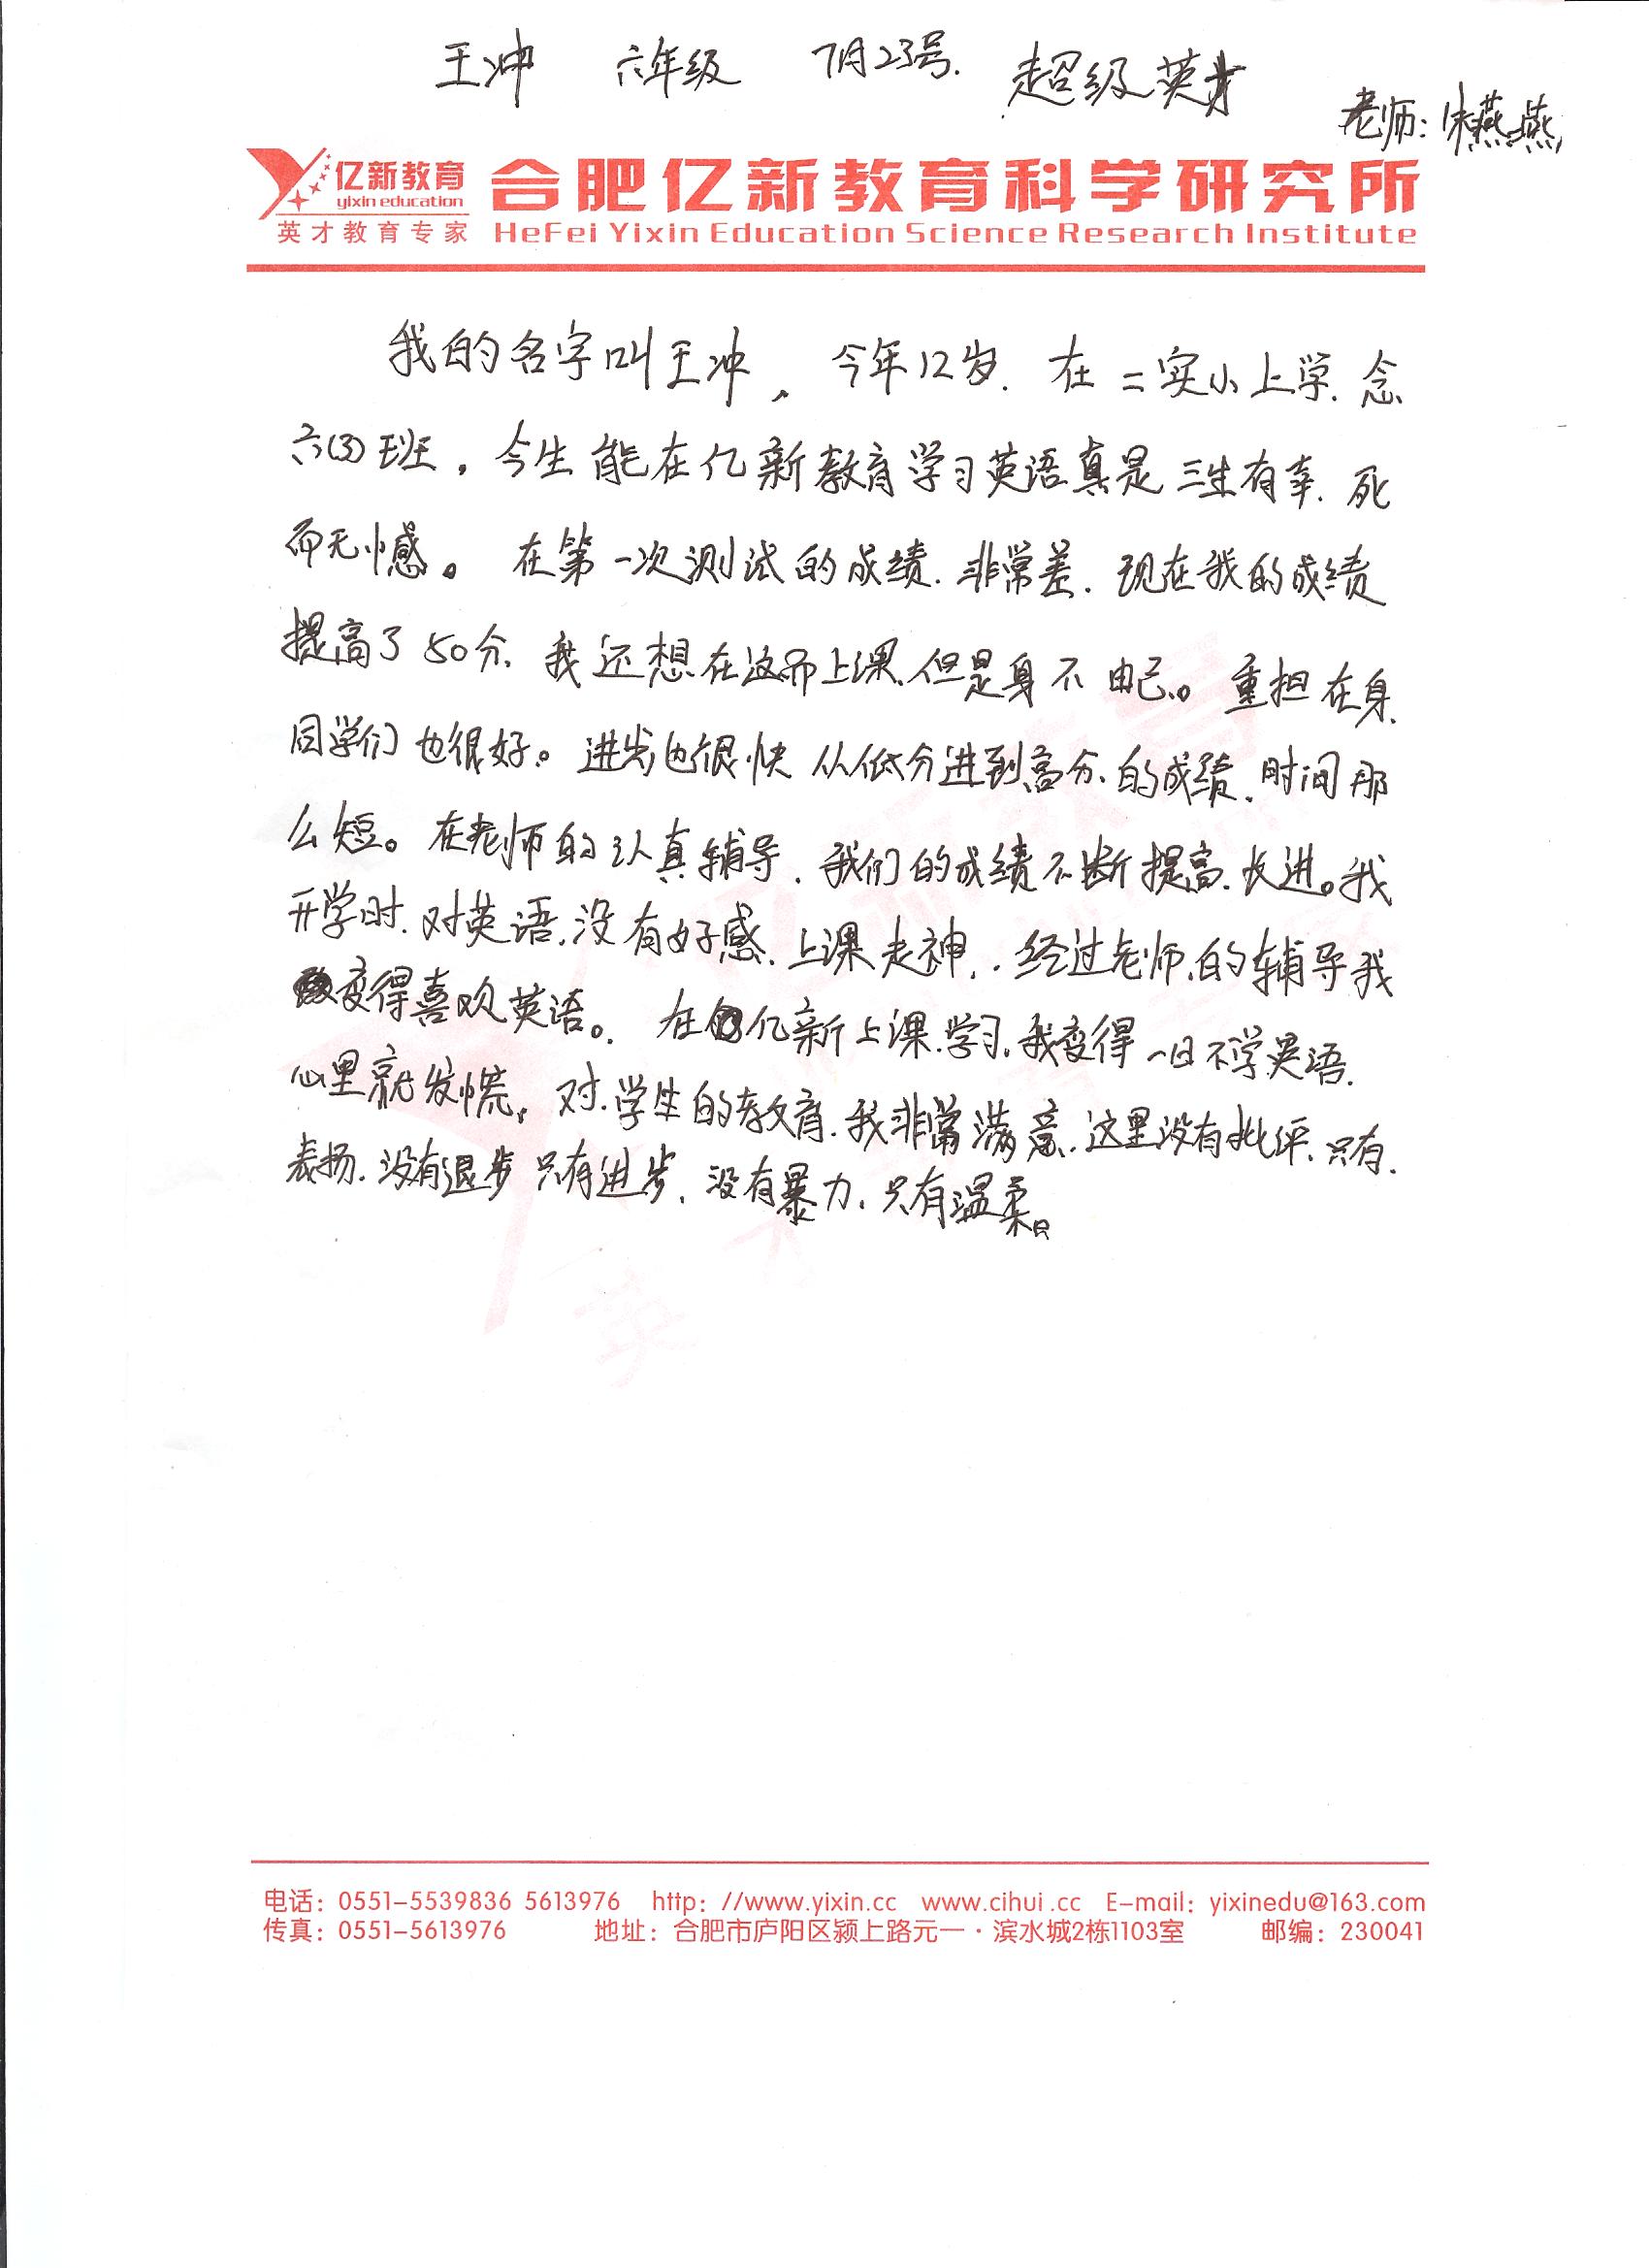 王冲 六年级 7月23号. 超级英才
老师:朱燕燕
亿新教育
yixin education
英才教育专家
合肥亿新教育科学研究所
HeFei Yixin Education Science Research Institute
我的名字叫王冲, 今年12岁. 在二实小上学. 念
六(3)班。今生能在亿新教育学习英语真是三生有幸. 死
而无憾。 在第一次测试的成绩. 非常差. 现在我的成绩
提高了50分. 我还想在这而上课.但是身不由己.。重担在身.
同学们也很好。进步也很快 从低分进到高分.的成绩.时间那
么短。在老师的认真辅导. 我们的成绩不断提高.长进。我
开学时.对英语.没有好感.上课走神..经过老师.的辅导我
变得喜欢英语。. 在亿新上课.学习.我变得一日不学英语.
心里就发慌。对.学生的教育.我非常满意.这里没有批评.只有.
表扬.没有退步 只有进步. 没有暴力.只有温柔。
电话: 0551-5539836 5613976 http: //www.yixin.cc www.cihui.cc E-mail: yixinedu@163.com
传真: 0551-5613976 地址: 合肥市庐阳区颍上路元一·滨水城2栋1103室 邮编: 230041